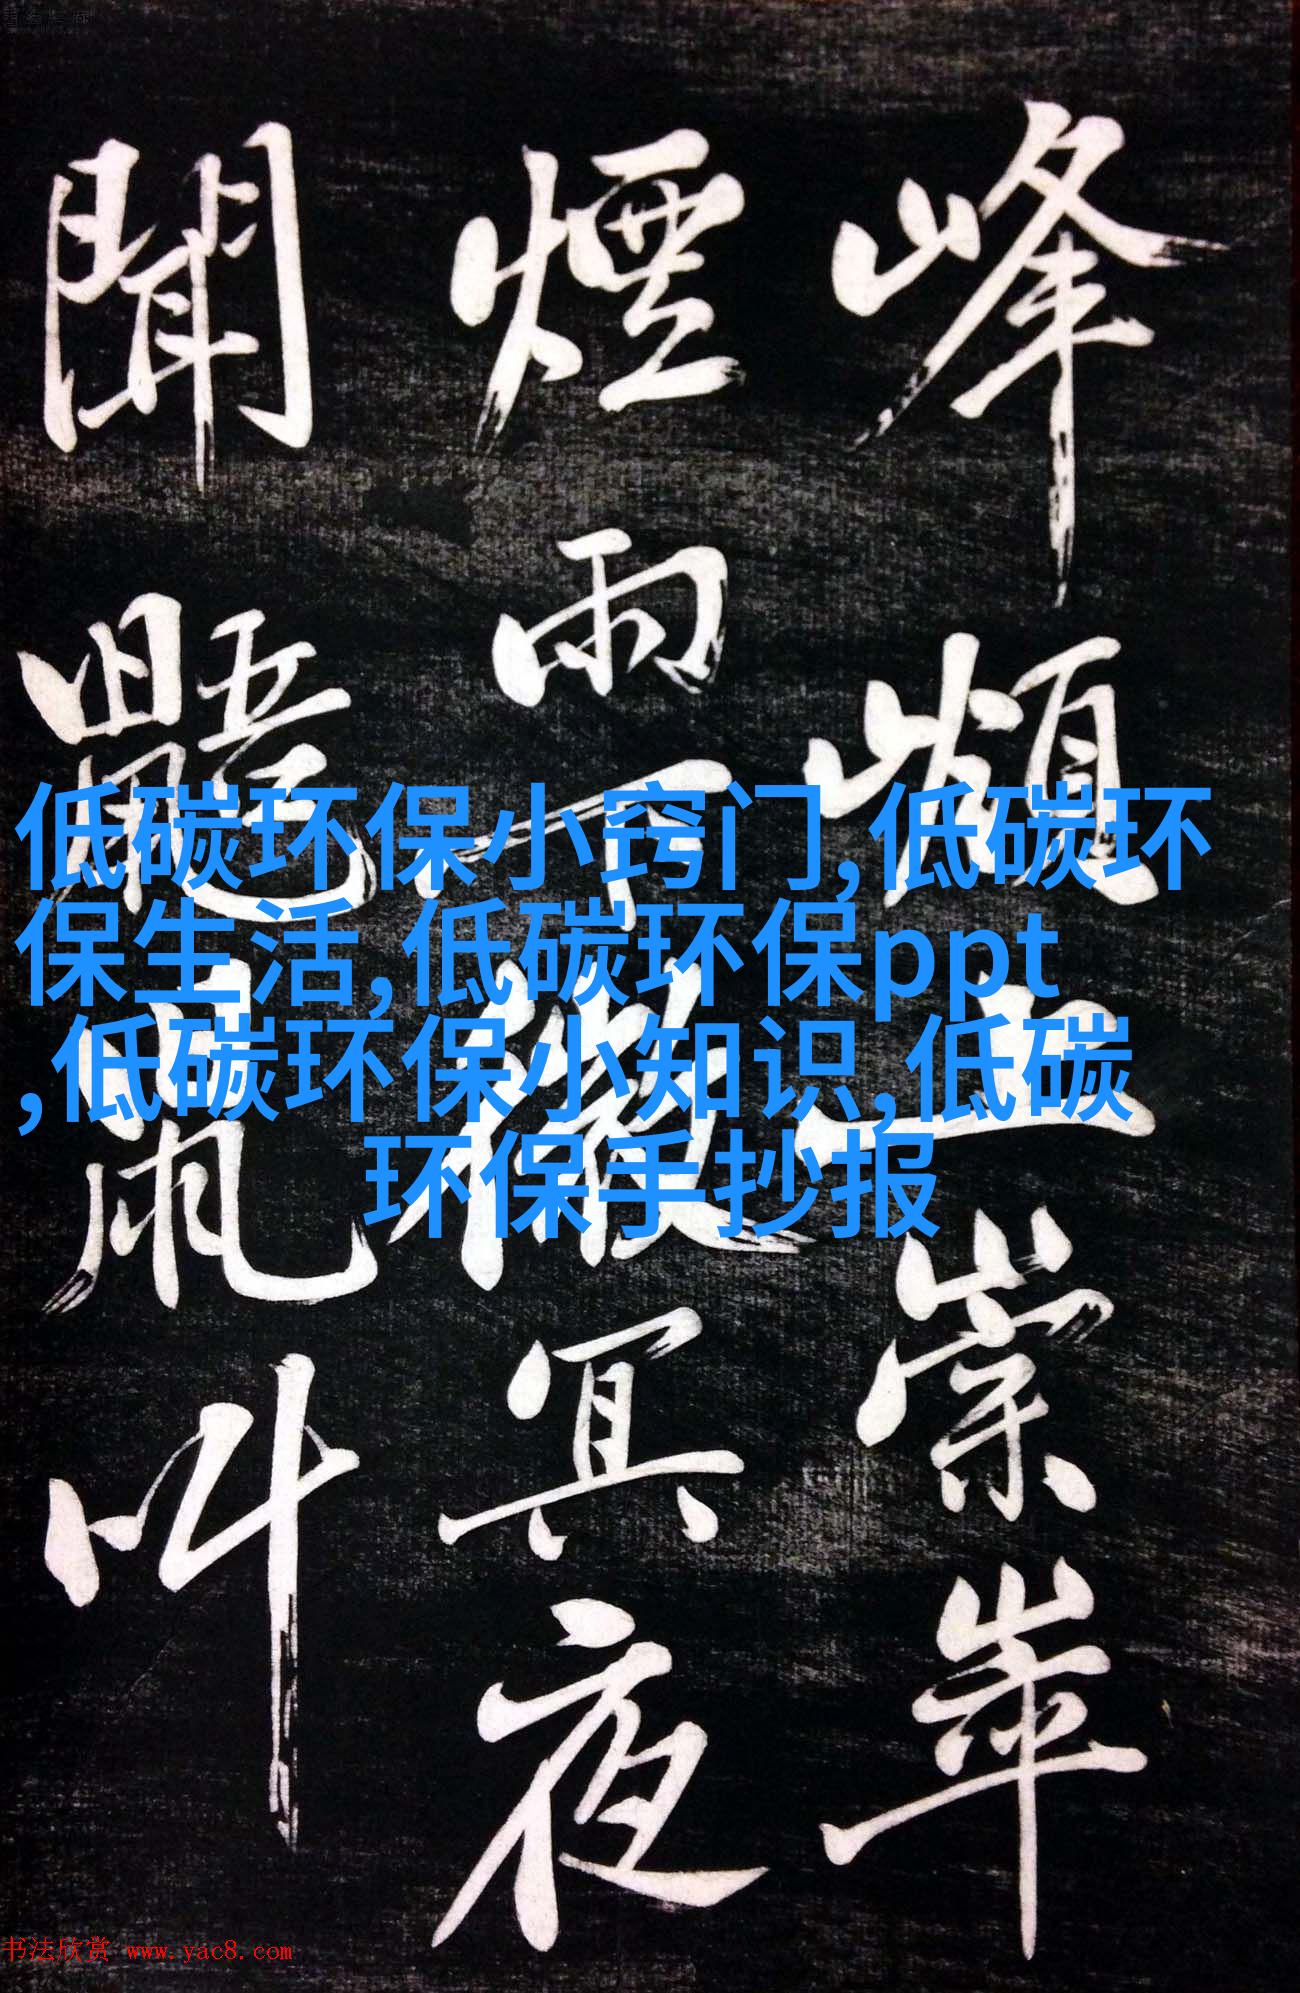 峰上崇崒
煙雨下微冥夜
聞鼯鼠叫
低碳环保小窍门,低碳环
保生活,低碳环保ppt
,低碳环保小知识,低碳
环保手抄报
书法欣赏 www.yac8.com